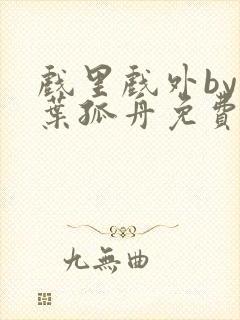 戲里戲外by
葉孤舟免費
九無曲